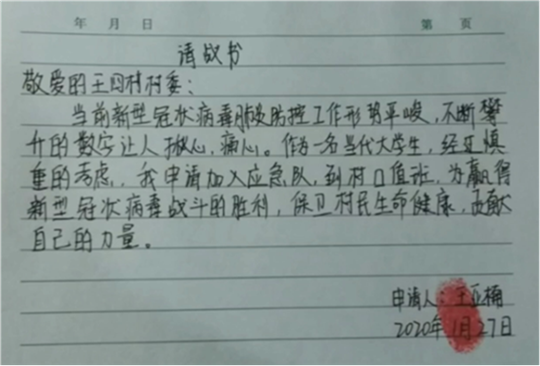 年 月 日 第 页
请战书
敬爱的王四村村委:
当前新型冠状病毒肺炎防控工作形势严峻,不断攀
升的数字让人揪心,痛心。作为一名当代大学生,经过慎
重的考虑,我申请加入应急队,到村口值班,为赢得
新型冠状病毒战斗的胜利,保卫村民生命健康,贡献
自己的力量。
申请人:王亚楠
2020年1月27日